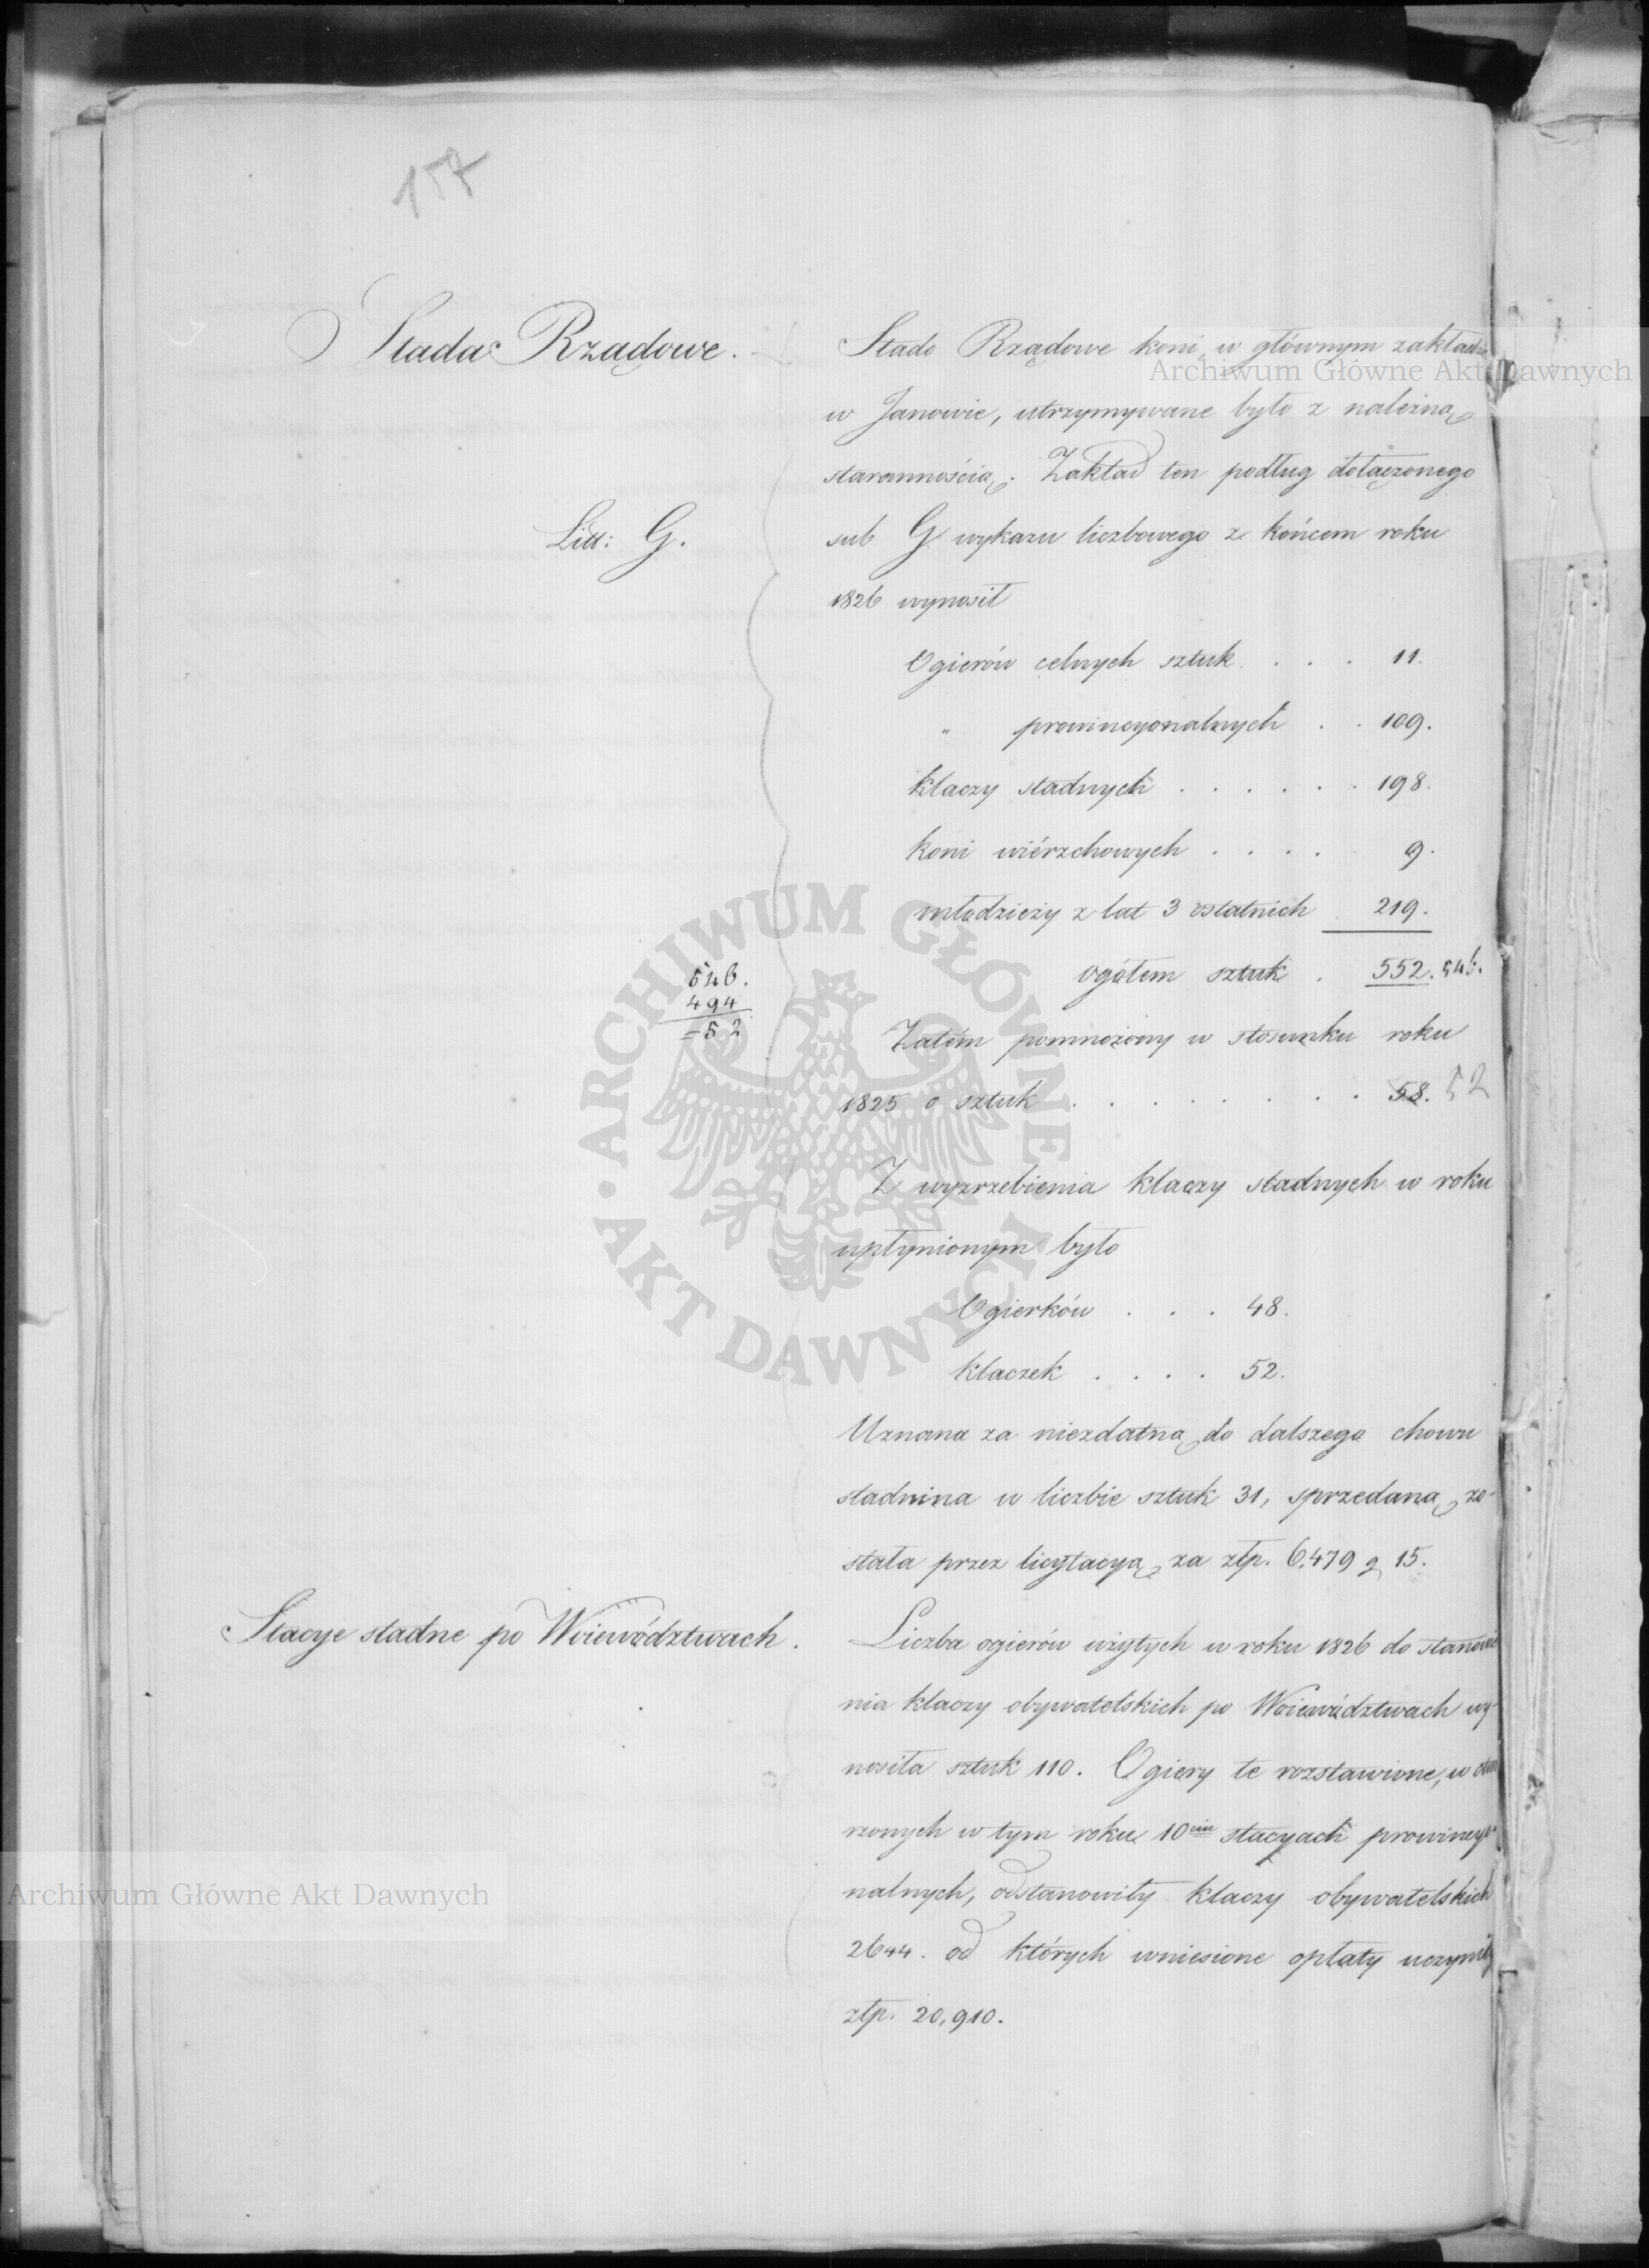 157
Stada Rządowe.
Stado Rządowe koni, w głównym zakładzie
w Janowie, utrzymywane było z należną
starannością. Zakład ten podług dołączonego
Litt: G.
sub G wykazu liczbowego z końcem roku
1826 wynosił
Ogierów celnych sztuk . . . 11.
" prowincyonalnych . . 109.
klaczy stadnych . . . . . . 198.
koni wiérzchowych . . . . 9.
młodzieży z lat 3 ostatnich . 219.
ogółem sztuk . 552. 546.
546.
494
=52
Zatém pomnożony w stosunku roku
1825 o sztuk . . . . . . . . . 58. 52
Z wyzrzebienia klaczy stadnych w roku
upłynionym było
Ogierków . . . 48.
klaczek . . . . 52.
Uznana za niezdatną do dalszego chowu
stadnina w liczbie sztuk 31, sprzedaną zo-
stała przez licytacyą za złp. 6,479 g 15.
Stacye stadne po Woiewództwach.
Liczba ogierów użytych w roku 1826 do stanowie
nia klaczy obywatelskich po Woiewództwach wy-
nosiła sztuk 110. Ogiery te rozstawione, w
rzonych w tym roku 10ciu stacyach prowincyo
nalnych, odstanowiły klaczy obywatelskich
2644. od których wniesione opłaty uczyniły
złp. 20,910.
Archiwum Główne Akt Dawnych
ARCHIWUM GŁÓWNE AKT DAWNYCH
Archiwum Główne Akt Dawnych